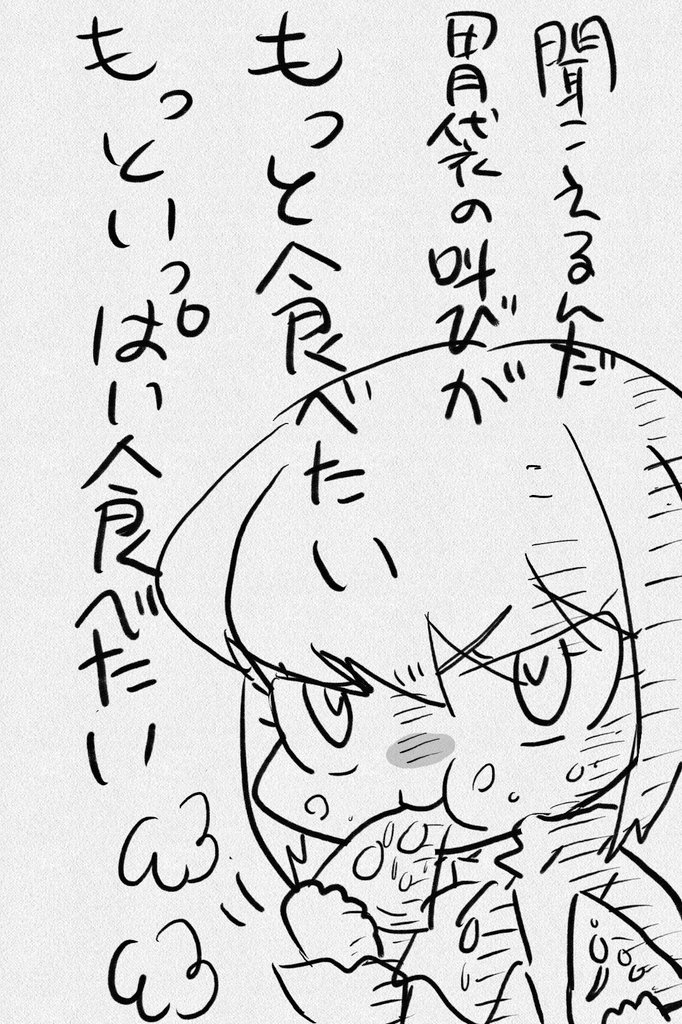 聞こえるんだ
胃袋の叫びが
もっと食べたい
もっといっぱい食べたい